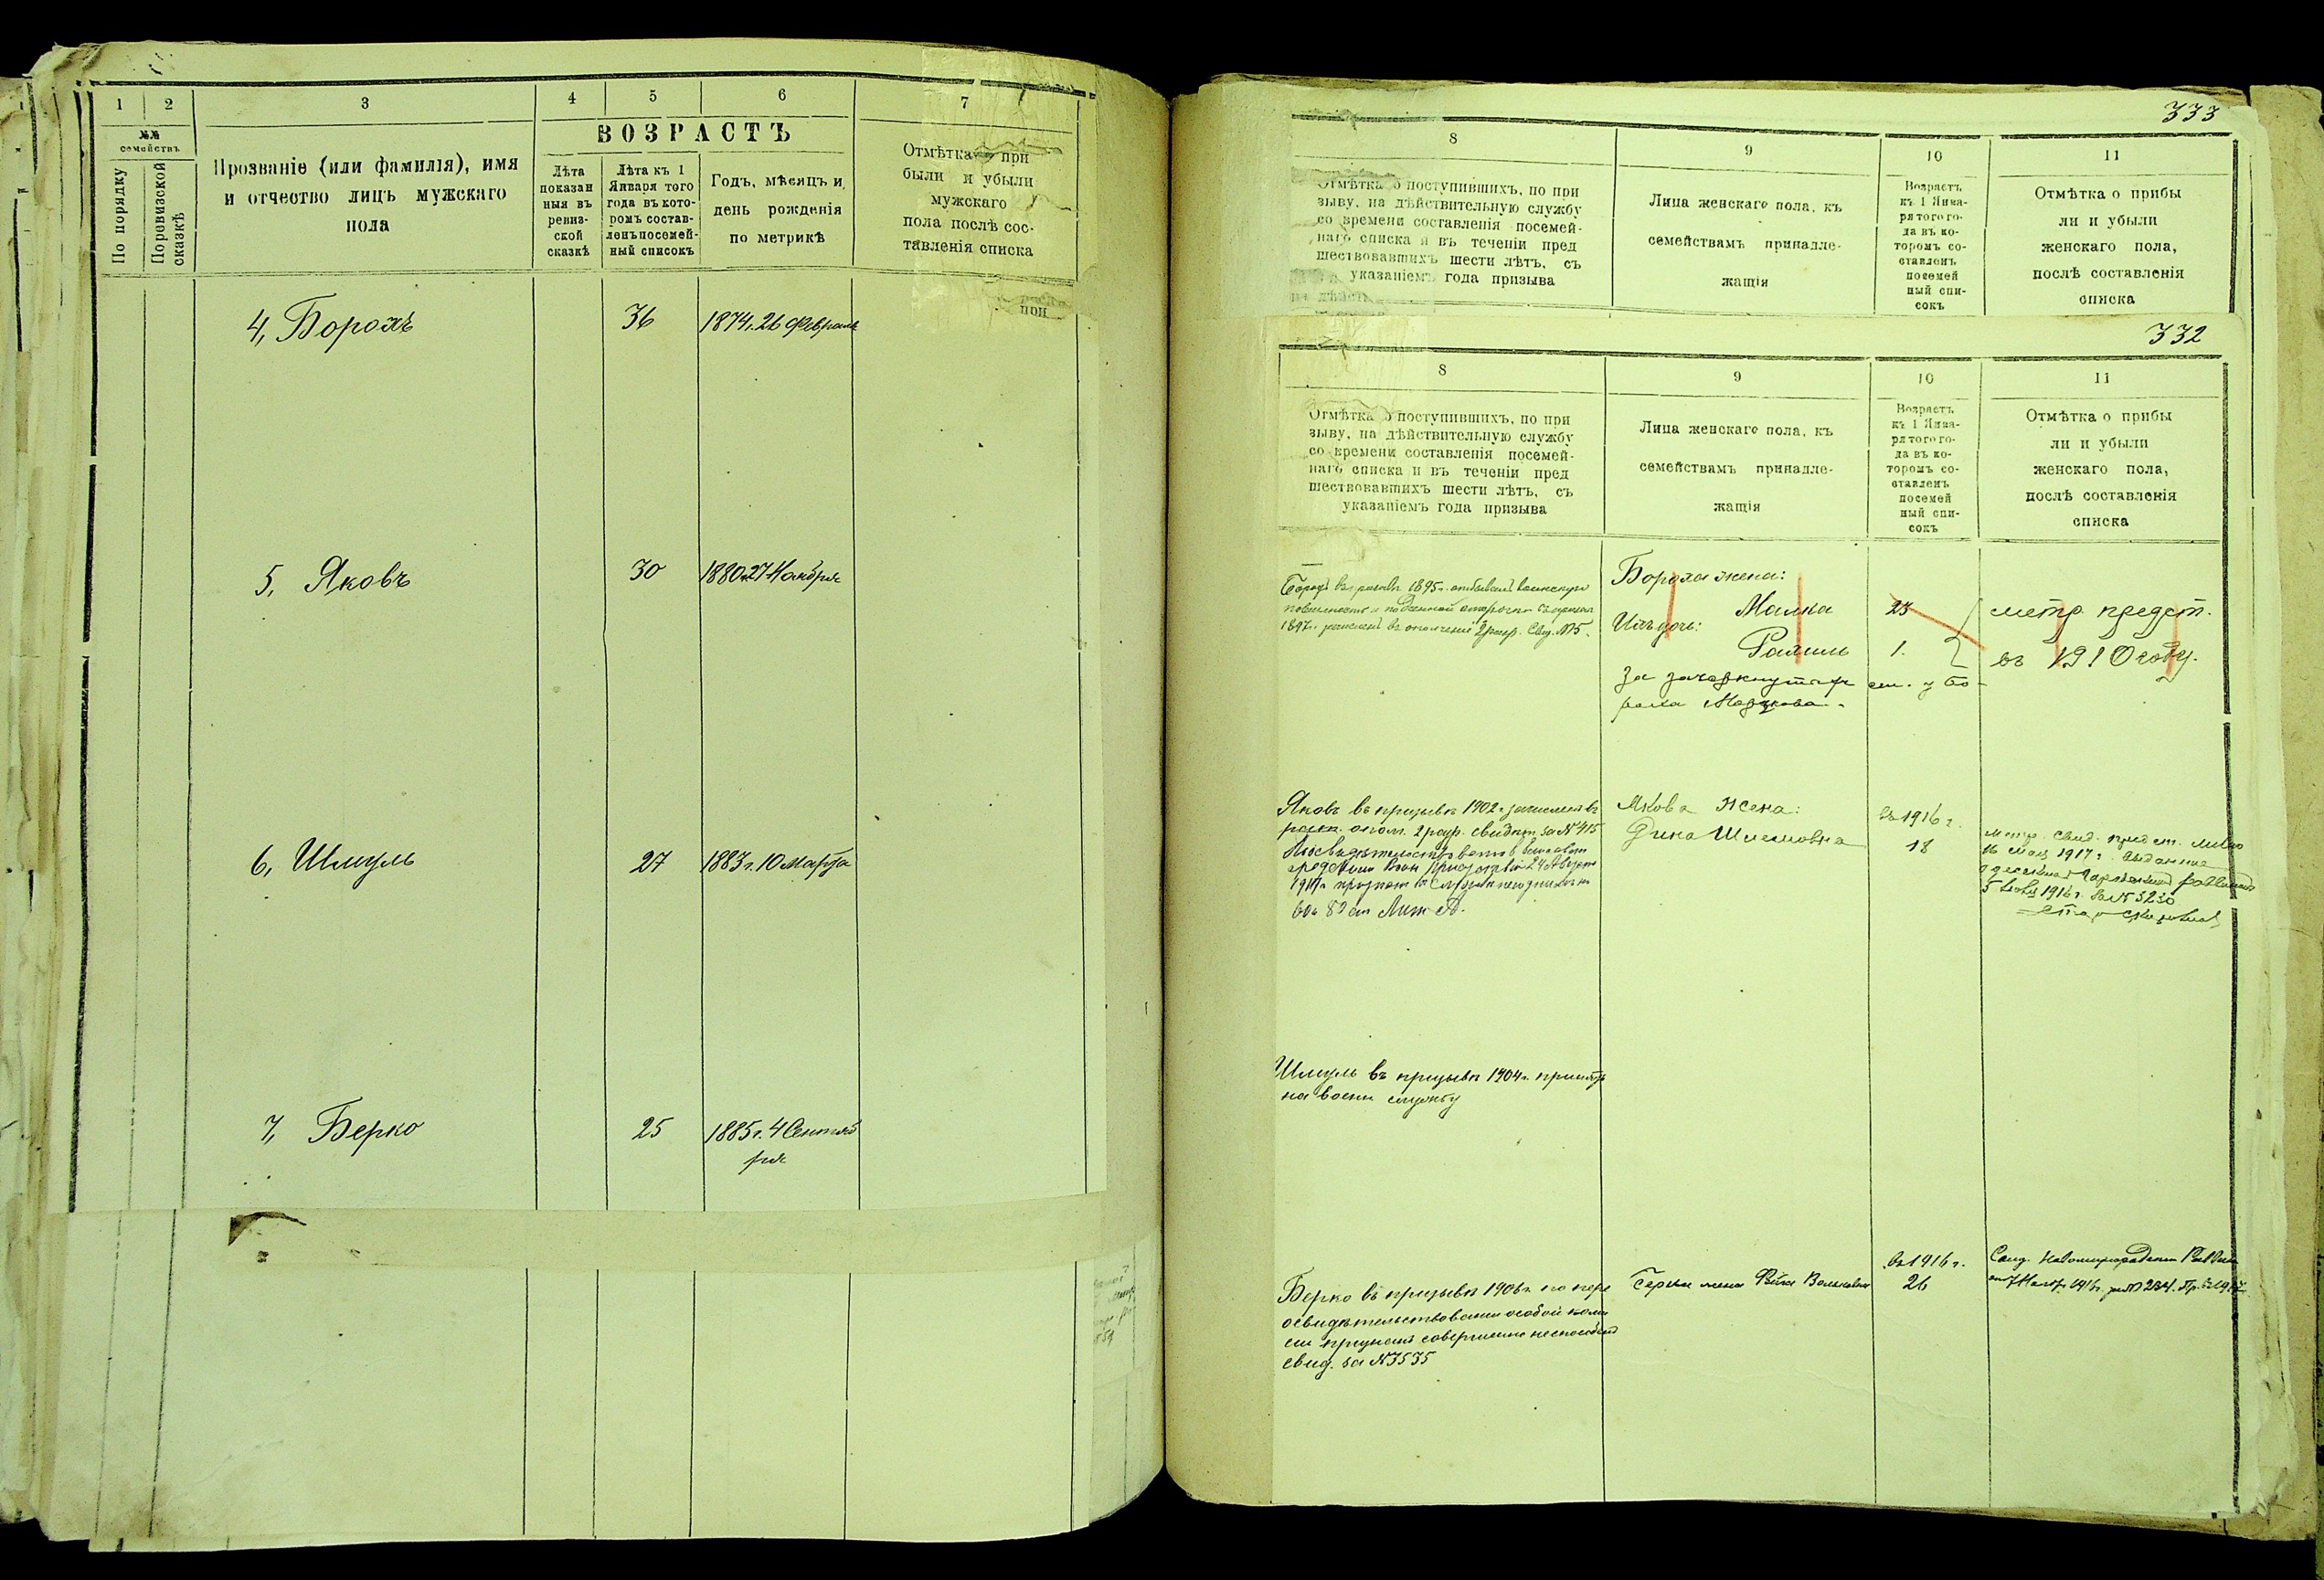 1 2 3 4 5 6 7
№№
семействъ
По порядку
По ревизской
сказкѣ
Прозваніе (или фамилія), имя
и отчество лицъ мужскаго
пола
ВОЗРАСТЪ
Лѣта
показан
ныя въ
ревиз-
ской
сказкѣ
Лѣта къ 1
Января того
года въ кото-
ромъ состав-
ленъ посемей-
ный списокъ
Годъ, мѣсяцъ и
день рожденія
по метрикѣ
Отмѣтка при
были и убыли
мужскаго
пола послѣ сос-
тавленія списка
при
4, Борохъ 36 1874 г. 26 Февраля
5, Яковъ 30 1880 г. 27 Ноября
6, Шмуль 27 1883 г. 10 Марта
7, Берко 25 1885 г. 4 Сентяб
ря
333
8 9 10 11
Отмѣтка о поступившихъ, по при
зыву, на дѣйствительную службу
со времени составленія посемей-
наго списка и въ теченіи пред
шествовавшихъ шести лѣтъ, съ
указаніемъ года призыва
Лица женскаго пола, къ
семействамъ принадле-
жащія
Возрастъ
къ 1 Янва-
ря того го-
да въ ко-
торомъ со-
ставленъ
посемей
ный спи-
сокъ
Отмѣтка о прибы
ли и убыли
женскаго пола,
послѣ составленія
списка
332
8 9 10 11
Отмѣтка о поступившихъ, по при
зыву, на дѣйствительную службу
со времени составленія посемей-
наго списка и въ теченіи пред
шествовавшихъ шести лѣтъ, съ
указаніемъ года призыва
Лица женскаго пола, къ
семействамъ принадле-
жащія
Возрастъ
къ 1 Янва-
ря того го-
да въ ко-
торомъ со-
ставленъ
посемей
ный спи-
сокъ
Отмѣтка о прибы
ли и убыли
женскаго пола,
послѣ составленія
списка
Борохъ въ 1895 г. отбывалъ воинскую
повинность и по данной отсрочке въ призыв
1897 г. зачислен въ ополчение 2 разр. Свид. №5.
Бороха жена:
Малка 23
Ихъ дочь:
Рахиль 1.
метр. предст.
въ 1910 году.
За зачеркнутаго ст. у Бо-
роха
Яковъ въ призывѣ 1902 г. зачисленъ въ
ополч. 2 разр. свидѣт. за № 415
24 Августа
60 и 89 ст Лит А.
Якова жена:
Дина Шлемовна
въ 1916 г.
18
метр. свид. предст.
16 мая 1917 г. выданное
5 1916 г. за № 3230
Шмуль въ призывѣ 1904 г. принятъ
на воен службу
Берко въ призывѣ 1906 г. по пере
освидѣтельствованіи особой коми
сіи признанъ совершенно неспособнымъ
свид. за №3535
Берки жена Вольковна
въ 1916 г.
26
Свид.